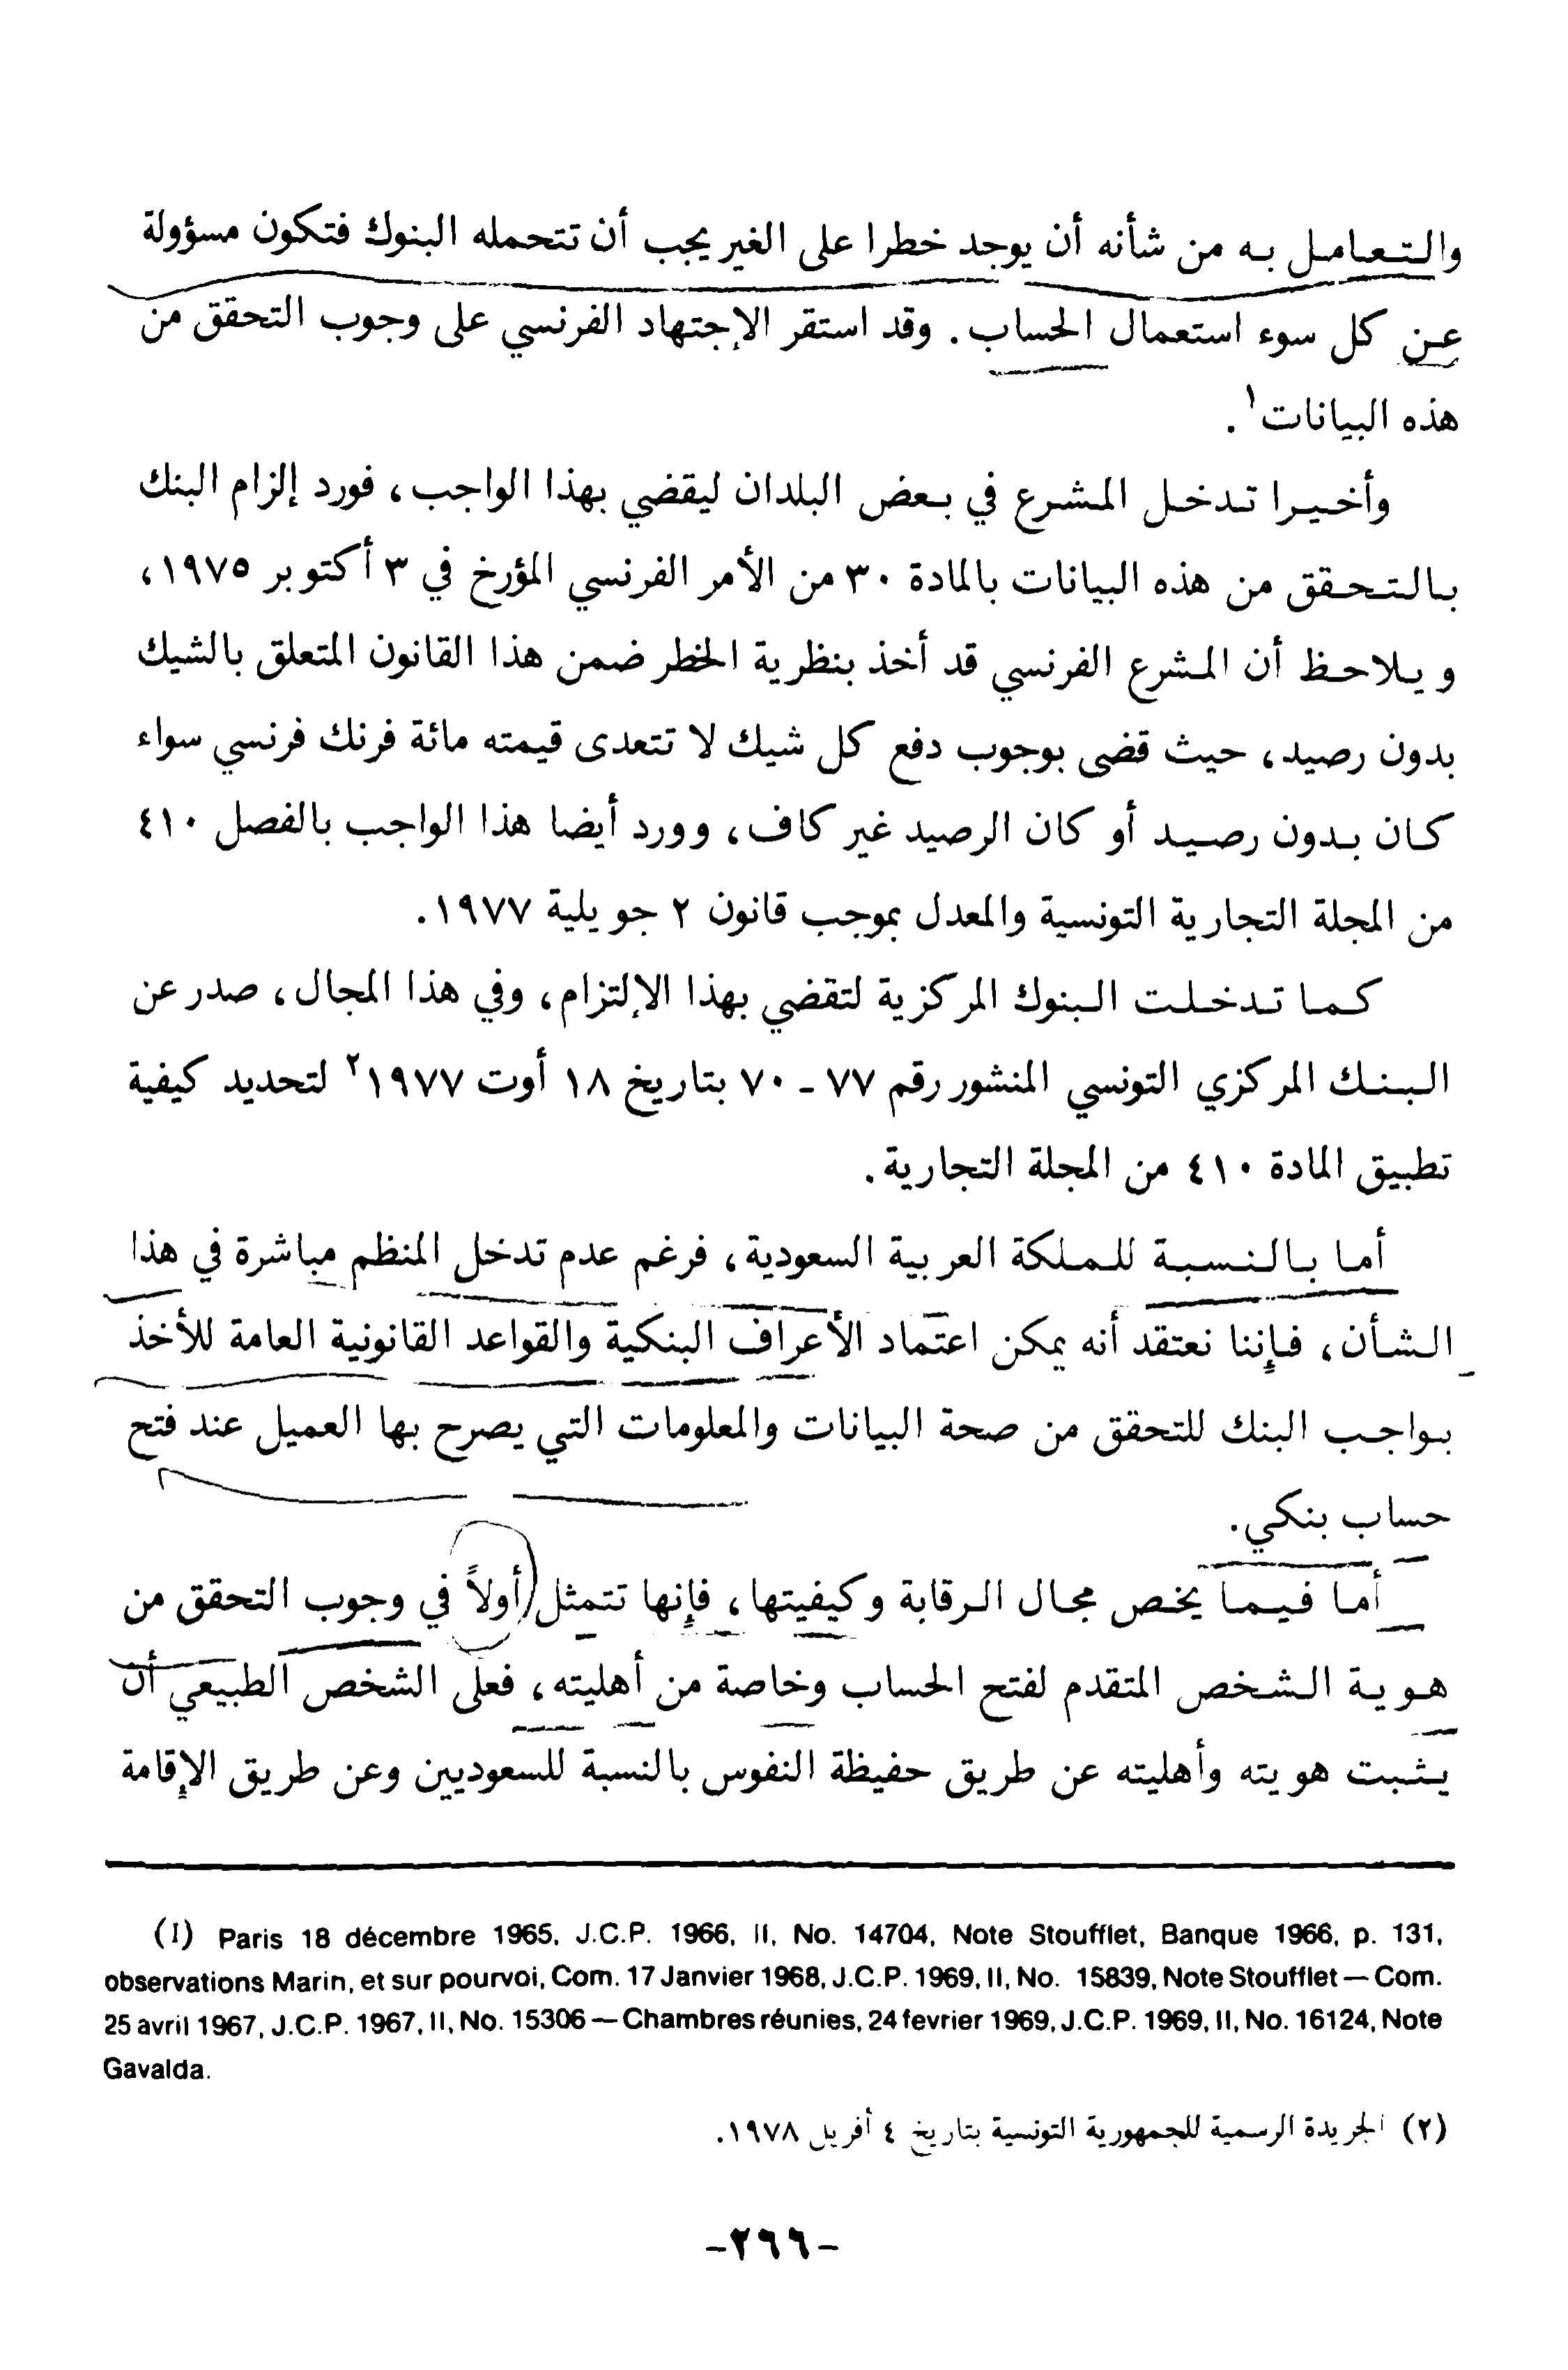 والتعامل به من شأنه أن يوجد خطرا على الغير يجب أن تتحمله البنوك فتكون مسؤولة
عن كل سوء استعمال الحساب. وقد استقر الإجتهاد الفرنسي على وجوب التحقق من
هذه البيانات١.
وأخيرا تدخل المشرع في بعض البلدان ليقضي بهذا الواجب، فورد إلزام البنك
بالتحقق من هذه البيانات بالمادة ٣٠ من الأمر الفرنسي المؤرخ في ٣ أكتوبر ١٩٧٥،
ويلاحظ أن المشرع الفرنسي قد أخذ بنظرية الخطر ضمن هذا القانون المتعلق بالشيك
بدون رصيد، حيث قضى بوجوب دفع كل شيك لا تتعدى قيمته مائة فرنك فرنسي سواء
كان بدون رصيد أو كان الرصيد غير كاف، وورد أيضا هذا الواجب بالفصل ٤١٠
من المجلة التجارية التونسية والمعدل بموجب قانون ٢ جويلية ١٩٧٧.
كما تدخلت البنوك المركزية لتقضي بهذا الإلتزام، وفي هذا المجال، صدر عن
البنك المركزي التونسي المنشور رقم ٧٧ - ٧٠ بتاريخ ١٨ أوت ١٩٧٧٢ لتحديد كيفية
تطبيق المادة ٤١٠ من المجلة التجارية.
أما بالنسبة للمملكة العربية السعودية، فرغم عدم تدخل المنظم مباشرة في هذا
الشأن، فإننا نعتقد أنه يمكن اعتماد الأعراف البنكية والقواعد القانونية العامة للأخذ
بواجب البنك للتحقق من صحة البيانات والمعلومات التي يصرح بها العميل عند فتح
حساب بنكي.
أما فيما يخص مجال الرقابة وكيفيتها، فإنها تتمثل أولاً في وجوب التحقق من
هوية الشخص المتقدم لفتح الحساب وخاصة من أهليته، فعلى الشخص الطبيعي أن
يثبت هويته وأهليته عن طريق حفيظة النفوس بالنسبة للسعوديين وعن طريق الإقامة
(1) Paris 18 décembre 1965, J.C.P. 1966, II, No. 14704, Note Stoufflet, Banque 1966, p. 131,
observations Marin, et sur pourvoi, Com. 17 Janvier 1968, J.C.P. 1969, II, No. 15839, Note Stoufflet — Com.
25 avril 1967, J.C.P. 1967, II, No. 15306 — Chambres réunies, 24 fevrier 1969, J.C.P. 1969, II, No. 16124, Note
Gavalda.
(٢) الجريدة الرسمية للجمهورية التونسية بتاريخ ٤ أفريل ١٩٧٨.
-٢٦٦-